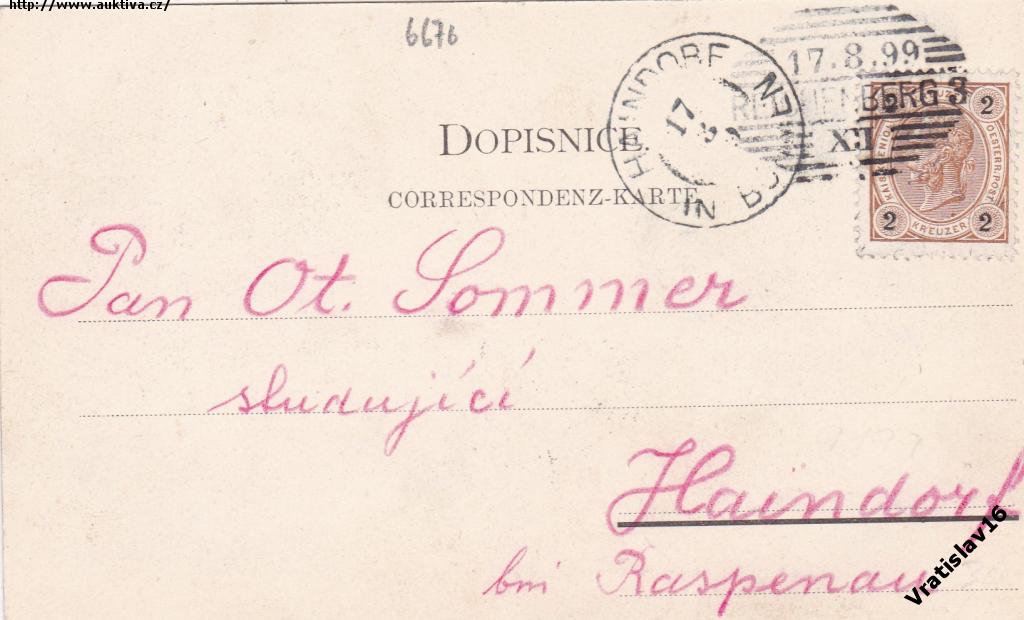 http://www.auktiva.cz/
6676
17.8.99
REICHENBERG 3
XI
HEINDORF IN BÖHMEN
17
DOPISNICE.
CORRESPONDENZ-KARTE
2 KREUZER 2
OESTERR.POST
2 KREUZER 2
Pan Ot. Sommer
studující
Haindorf
bni Raspenau
Vratislav16